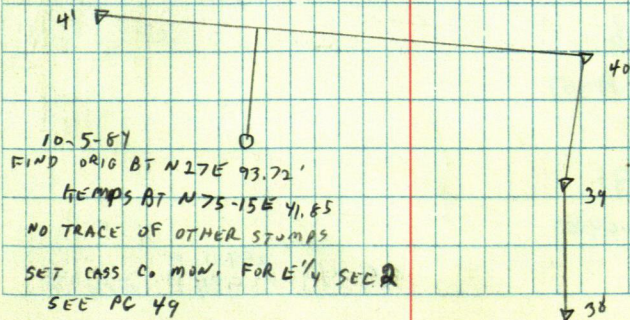 41
40
10-5-84
FIND ORIG BT N27E 93.72'
KEMPS BT N75-15E 41.85
39
NO TRACE OF OTHER STUMPS
SET CASS CO. MON. FOR E 1/4 SEC 2
SEE PG 49
38